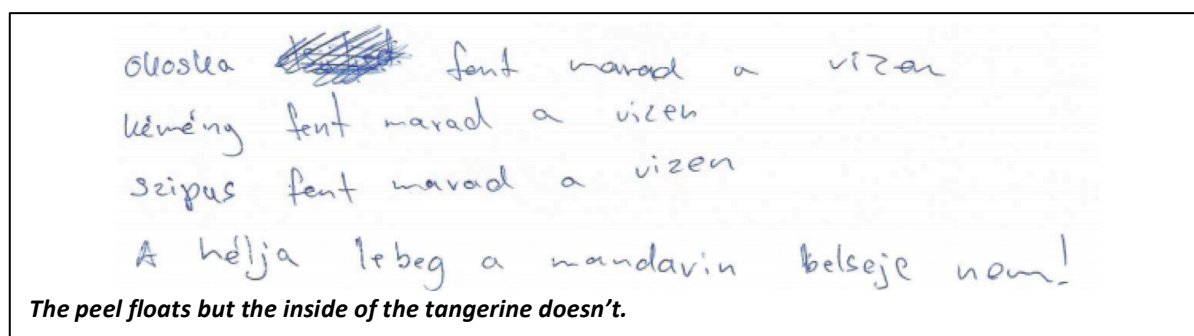 okoska fent marad a vizen
kémény fent marad a vizen
szipus fent marad a vizen
A hélja lebeg a mandarin belseje nem!
The peel floats but the inside of the tangerine doesn't.